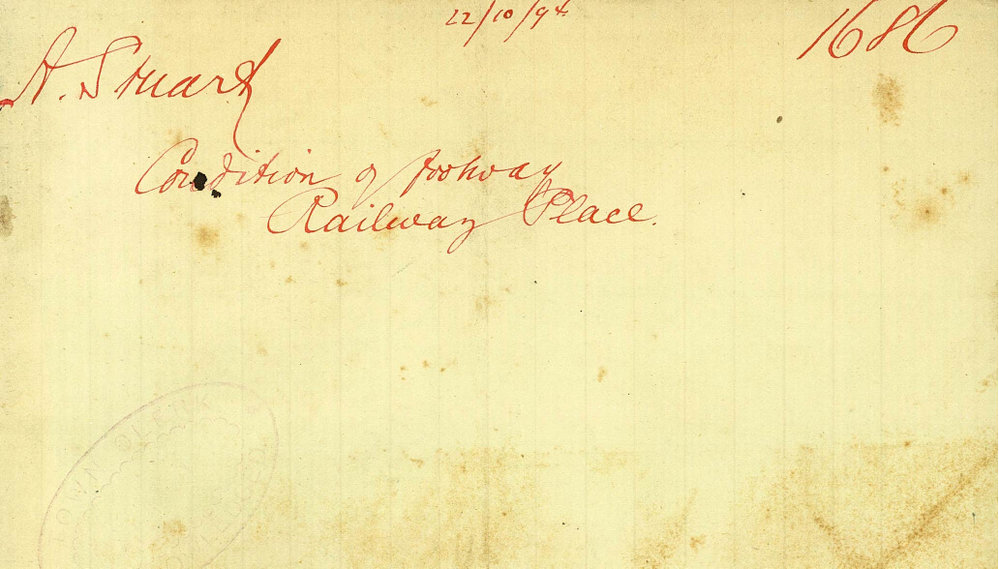 22/10/94
1686
A. Stuart
Condition of footway
Railway Place.
TOWN CLERK